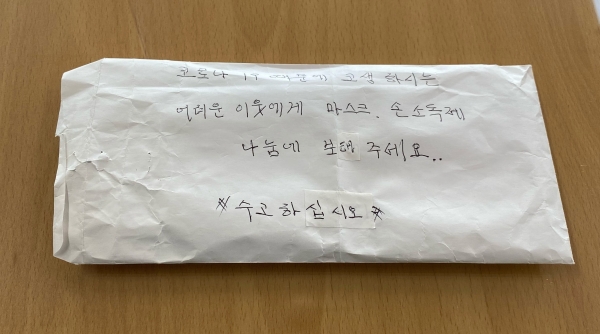 코로나 19 때문에 고생하시는
어더운 이웃에게 마스크. 손소독제
나눔에 보탬 주세요..
* 수고하십시오 *